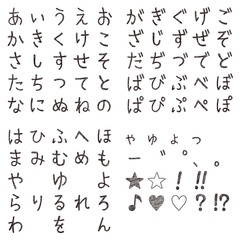 あいうえお
かきくけこ
さしすせそ
たちつてと
なにぬねの
がぎぐげご
ざじずぜぞ
だぢづでど
ばびぶべぼ
ぱぴぷぺぽ
はひふへほ
まみむめも
やゆよ
らりるれろ
わをん
ゃゅょっ
ー ゛ ゜ 、 。
★ ☆ ! !!
♪ ♥ ♡ ? !?